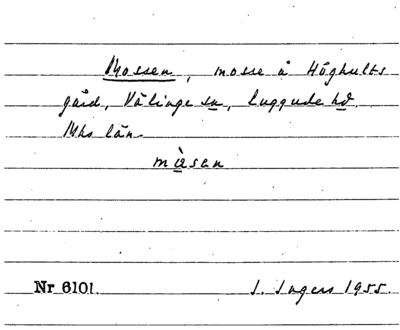 Mossen, mosse å Höghults
gård, Välinge sn, Luggude hd.
Mhs län.
Nr 6101. I. Ingers 1955.